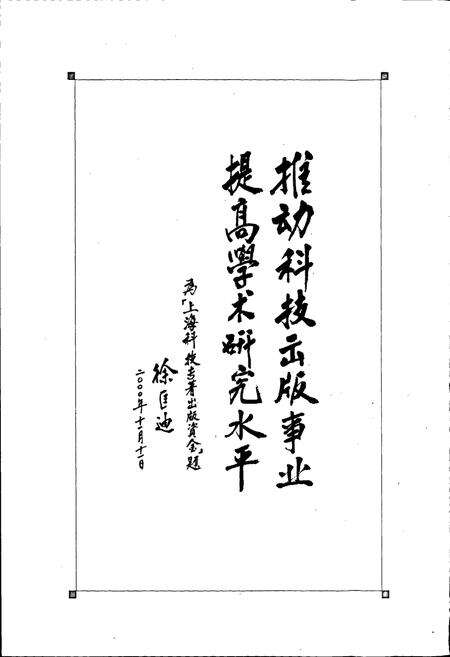 推动科技出版事业
提高學术研究水平
为「上海科技专著出版资金」题
徐匡迪
二〇〇〇年十一月十一日